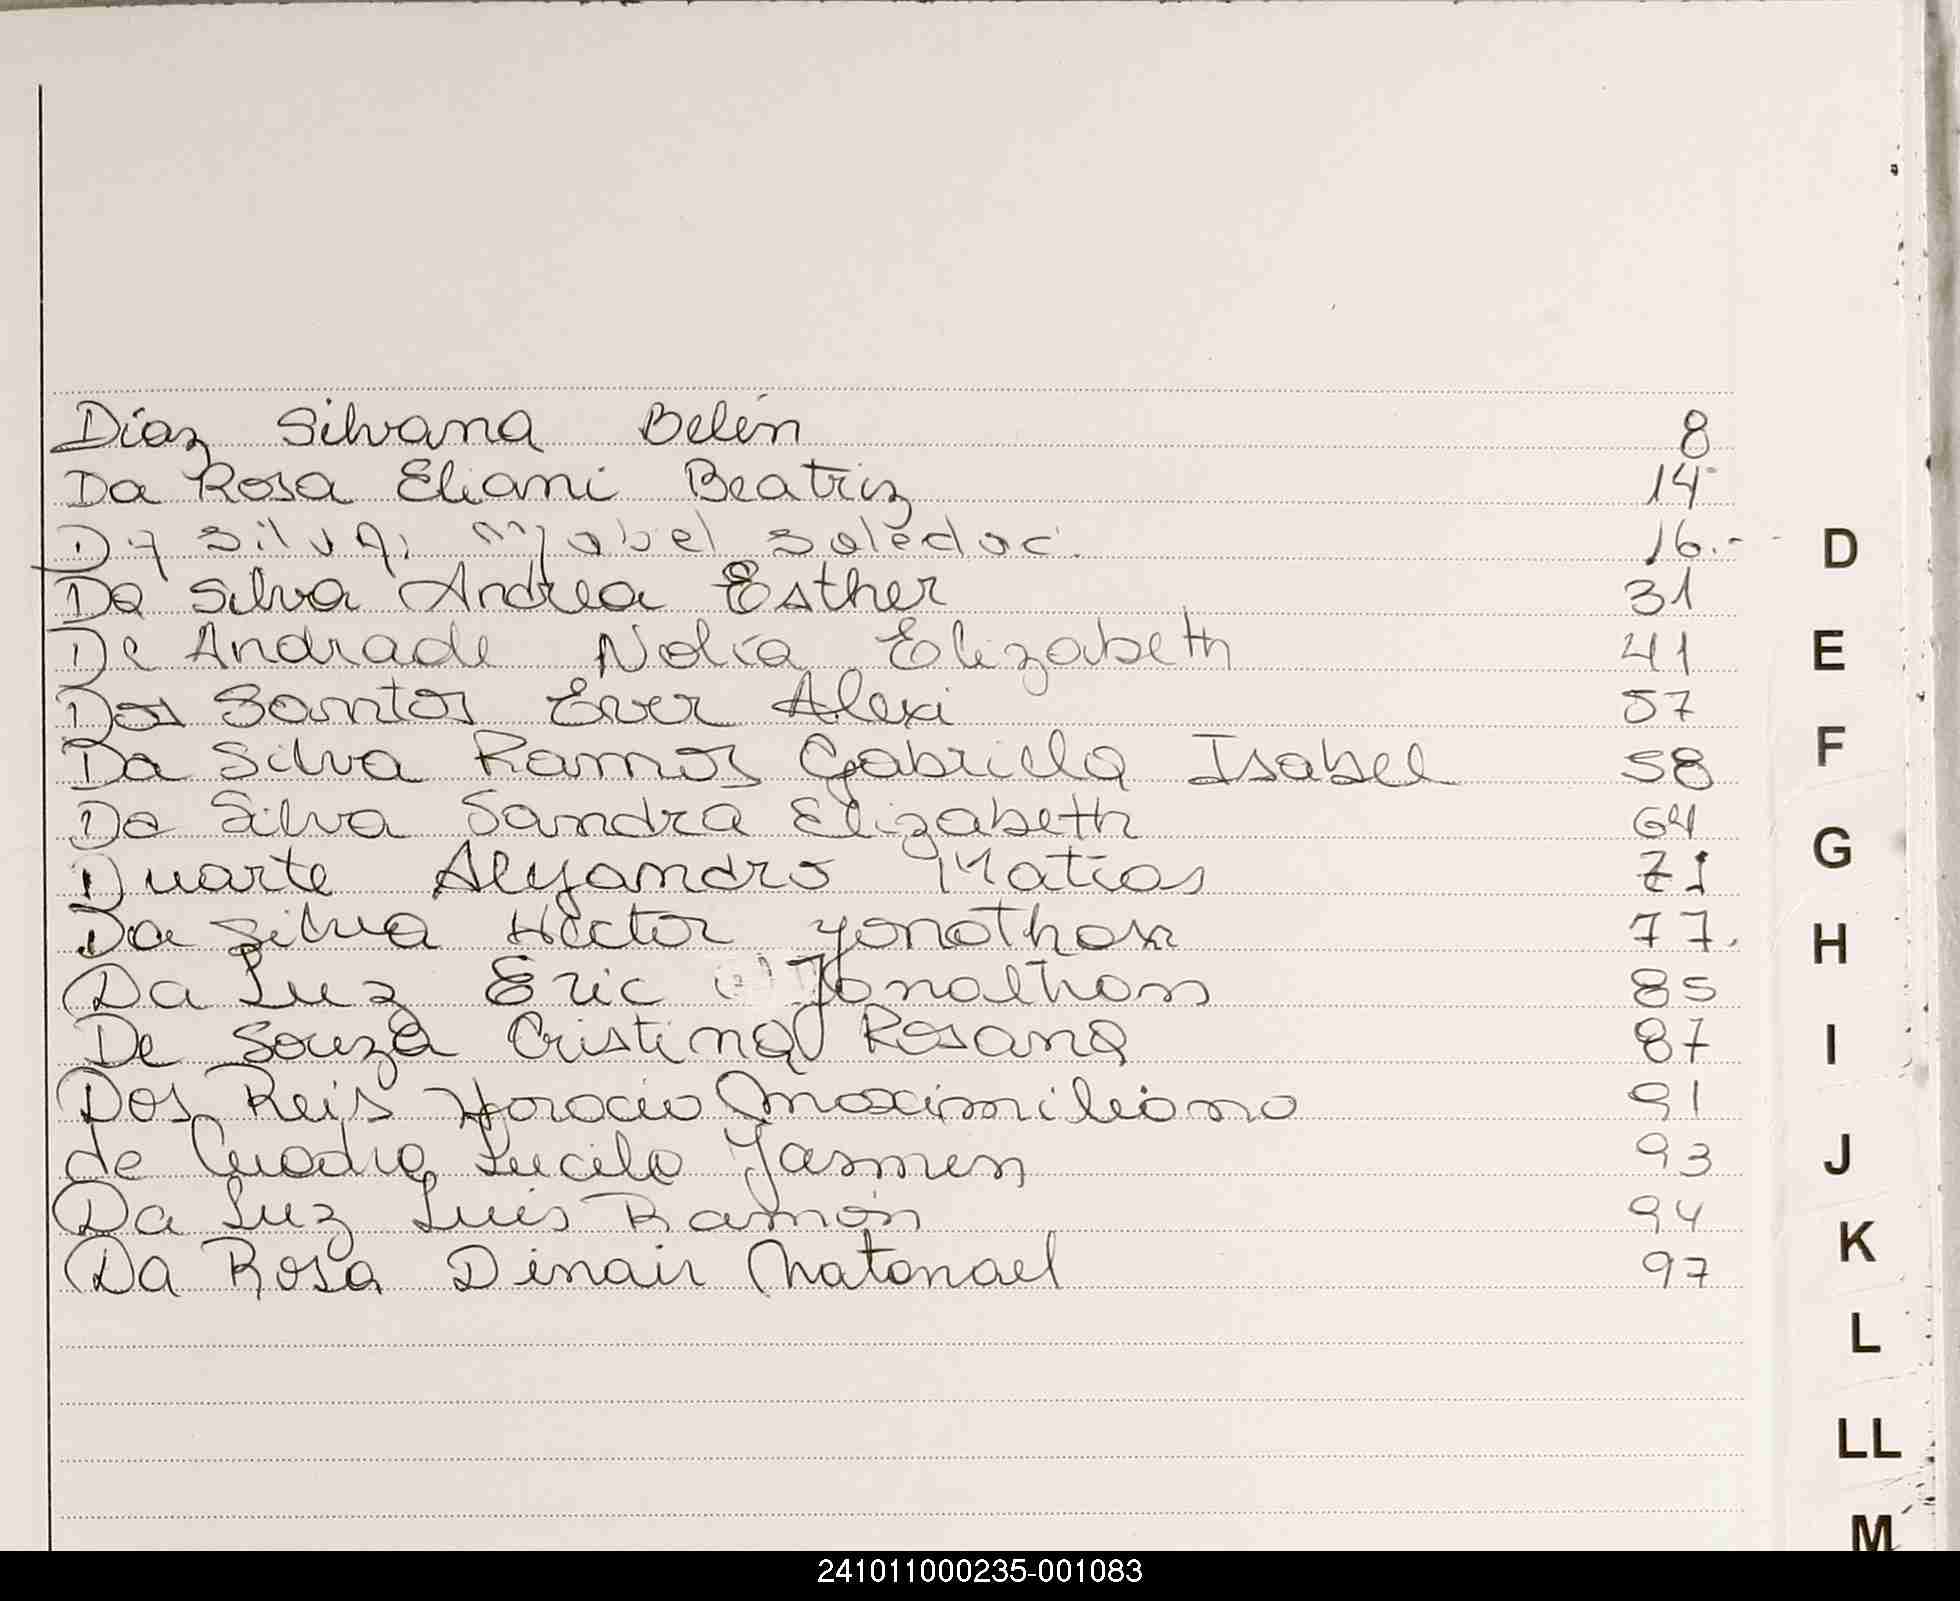 Díaz Silvana Belén 8
Da Rosa Eliani Beatriz 14
Da Silva, Mabel Soledad. 16.-
Da Silva Andrea Esther 31
De Andrade Nolia Elizabeth 41
Dos Santos Ever Alexi 57
Da Silva Ramos Gabriela Isabel 58
Da Silva Sandra Elizabeth 64
Duarte Alejandro Matias 71
Da Silva Hector Yonathan 77.
Da Luz Eric Jonathan 85
De Souza Cristina Rosana 87
Dos Reis Horacio Maximiliano 91
de Cuadra Lucila Yasmin 93
Da Luz Luis Ramón 94
Da Rosa Dinair Natanael 97
D
E
F
G
H
I
J
K
L
LL
M
241011000235-001083